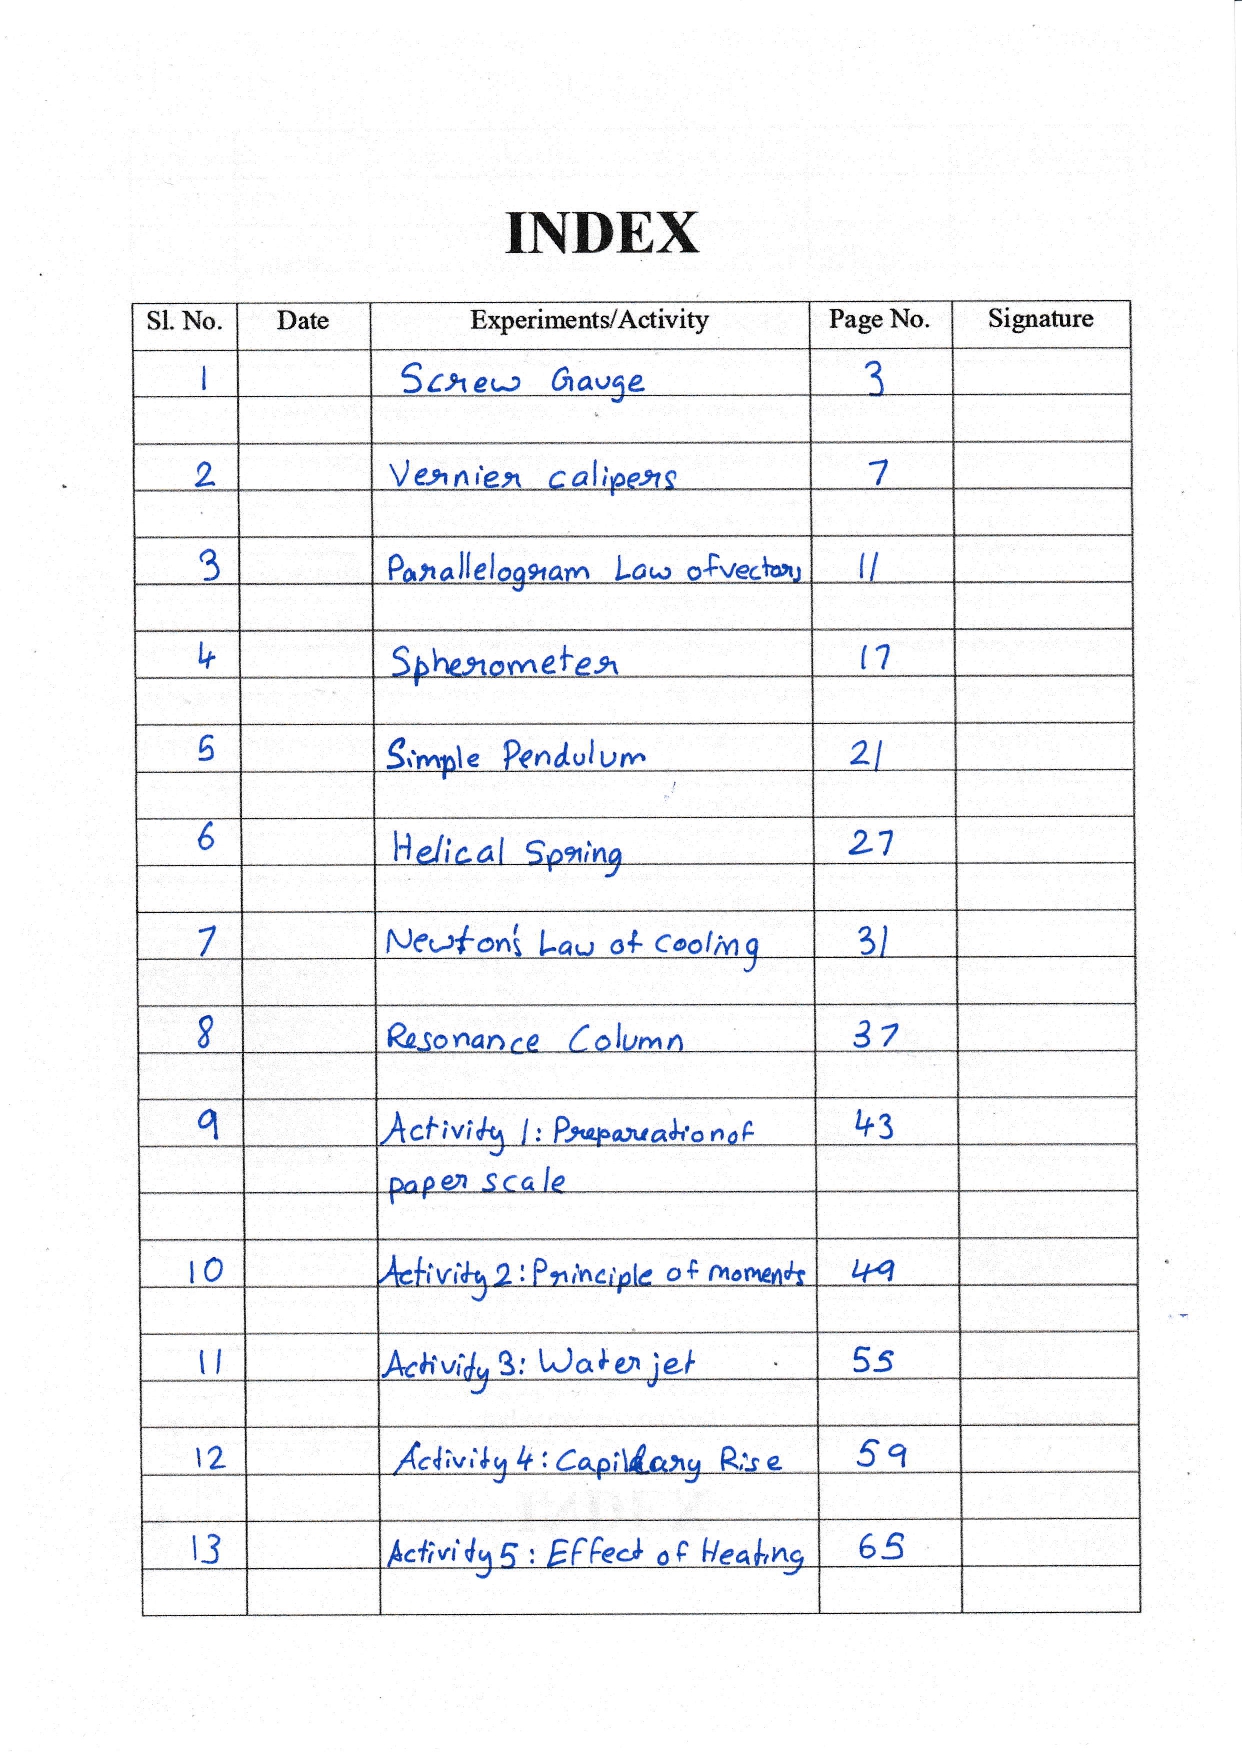 INDEX
Sl. No. Date Experiments/Activity Page No. Signature
1 Screw Gauge 3
2 Vernier calipers 7
3 Parallelogram Law of vectors 11
4 Spherometer 17
5 Simple Pendulum 21
6 Helical Spring 27
7 Newton's Law of cooling 31
8 Resonance Column 37
9 Activity 1: Preparation of 43
paper scale
10 Activity 2: Principle of moments 49
11 Activity 3: Water jet 55
12 Activity 4: Capillary Rise 59
13 Activity 5: Effect of Heating 65